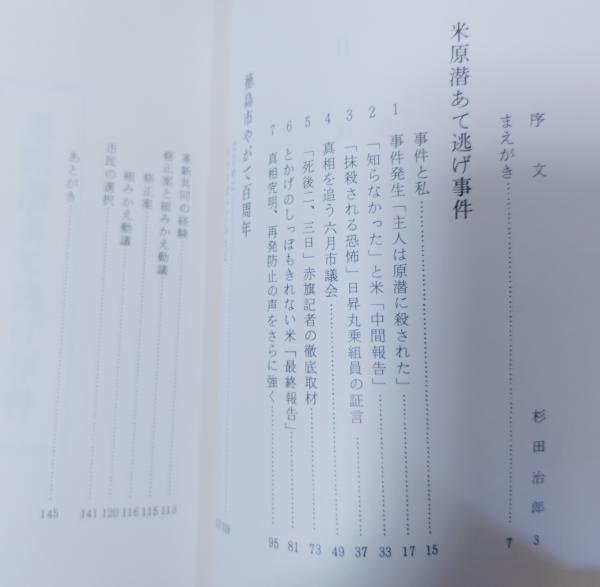 序文 杉田治郎 3
まえがき 7
米原潜あて逃げ事件
事件と私 15
1 事件発生「主人は原潜に殺された」 17
2 「知らなかった」と米「中間報告」 33
3 「抹殺される恐怖」日昇丸乗組員の証言 37
4 真相を追う六月市議会 49
5 「死後二、三日」赤旗記者の徹底取材 73
6 とかげのしっぽもきれない米「最終報告」 81
7 真相究明、再発防止の声をさらに強く 95
徳島市やがて百周年
革新共同の経験 113
修正案と組みかえ動議 115
修正案 116
組みかえ動議 120
市民の選択 141
あとがき 145